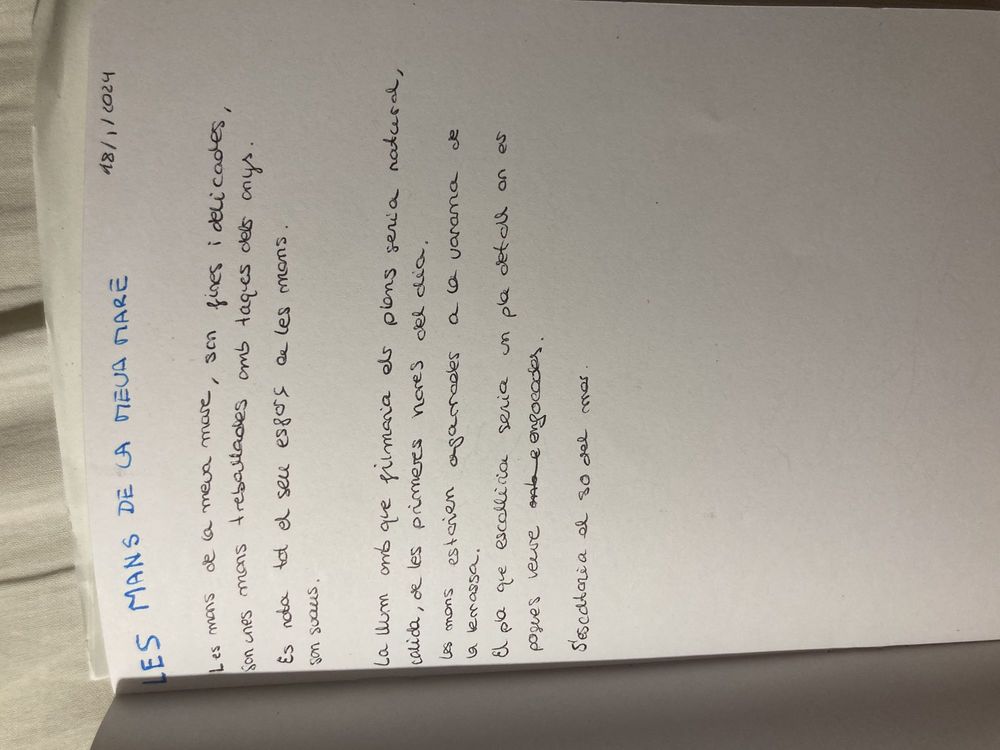 18/1/2024
LES MANS DE LA MEVA MARE
Les mans de la meva mare, son fines i delicades,
son unes mans treballades amb taques dels anys.
Es nota tot el seu esforç de les mans.
son suaus.
La llum amb que filmaria els plans seria natural,
calida, de les primeres hores del dia.
Les mans estarien agarrades a la varana de
la terrassa.
El pla que escolliria seria un pla detall on es
pogues veure enfocades.
S'escoltaria el so del mar.